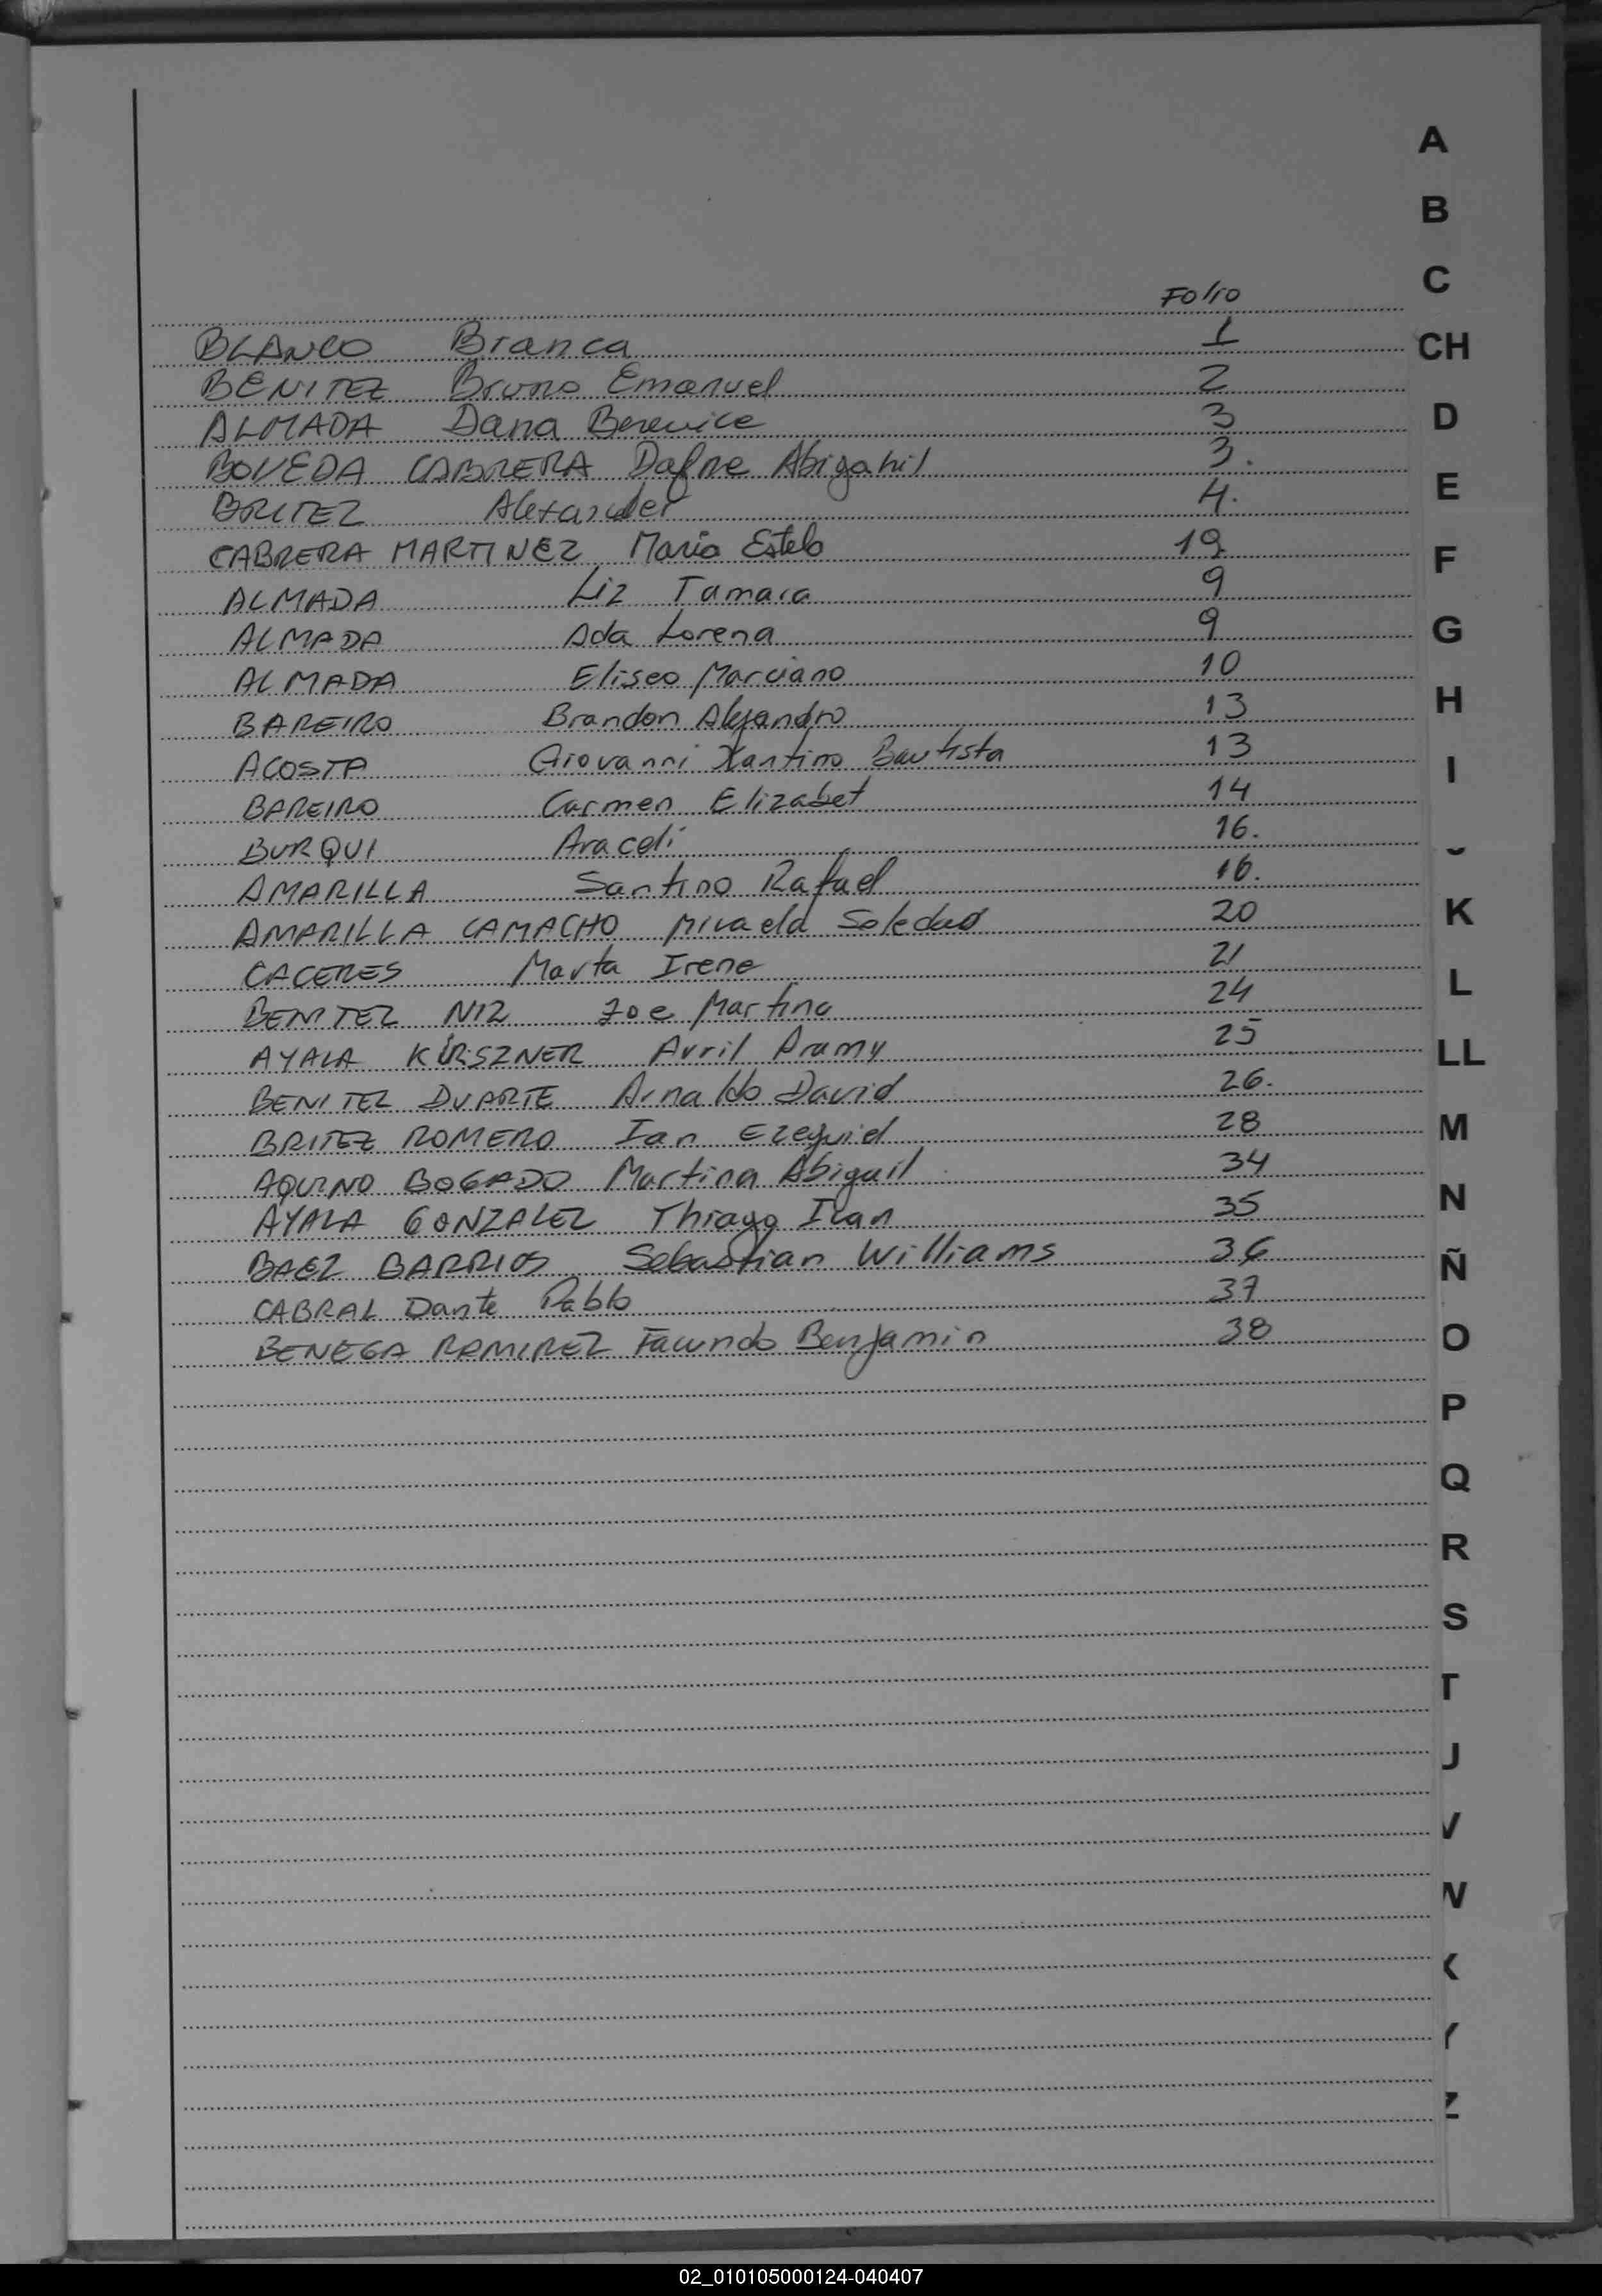 Folio
BLANCO Branca 1
BENITEZ Bruno Emanuel 2
ALMADA Dana Berenice 3
BOVEDA CABRERA Dafne Abigahil 3.
BRITEZ Alexander 4.
CABRERA MARTINEZ Maria Estela 19
ALMADA Liz Tamara 9
ALMADA Ada Lorena 9
ALMADA Eliseo Marciano 10
BAREIRO Brandon Alejandro 13
ACOSTA Giovanni Xantino Bautista 13
BAREIRO Carmen Elizabet 14
BURQUI Araceli 16.
AMARILLA Santino Rafael 16.
AMARILLA CAMACHO Micaela Soledad 20
CACERES Marta Irene 21
BENITEZ NIZ Zoe Martina 24
AYALA Avril Aramy 25
BENITEZ DUARTE Arnaldo David 26.
BRITEZ ROMERO Ian Ezequiel 28
AQUINO BOGADO Martina Abigail 34
AYALA GONZALEZ Thiago Ilan 35
BAEZ BARRIOS Sebastian Williams 36
CABRAL Dante Pablo 37
BENEGA RAMIREZ Facundo Benjamin 38
A
B
C
CH
D
E
F
G
H
I
K
L
LL
M
N
Ñ
O
P
Q
R
S
T
U
V
W
X
Y
Z
02_010105000124-040407